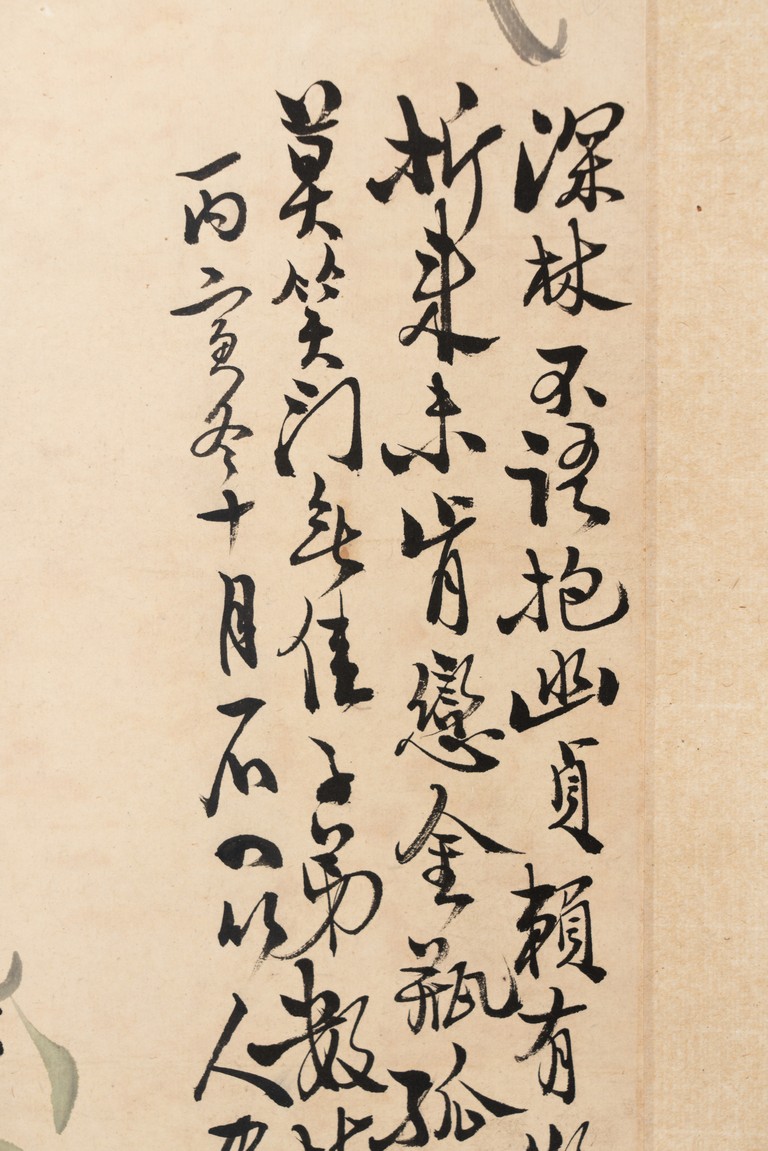 深林不語抱幽貞賴有
折來未肯戀金瓶孤
莫笑門無佳子弟數
丙寅冬十月石
人